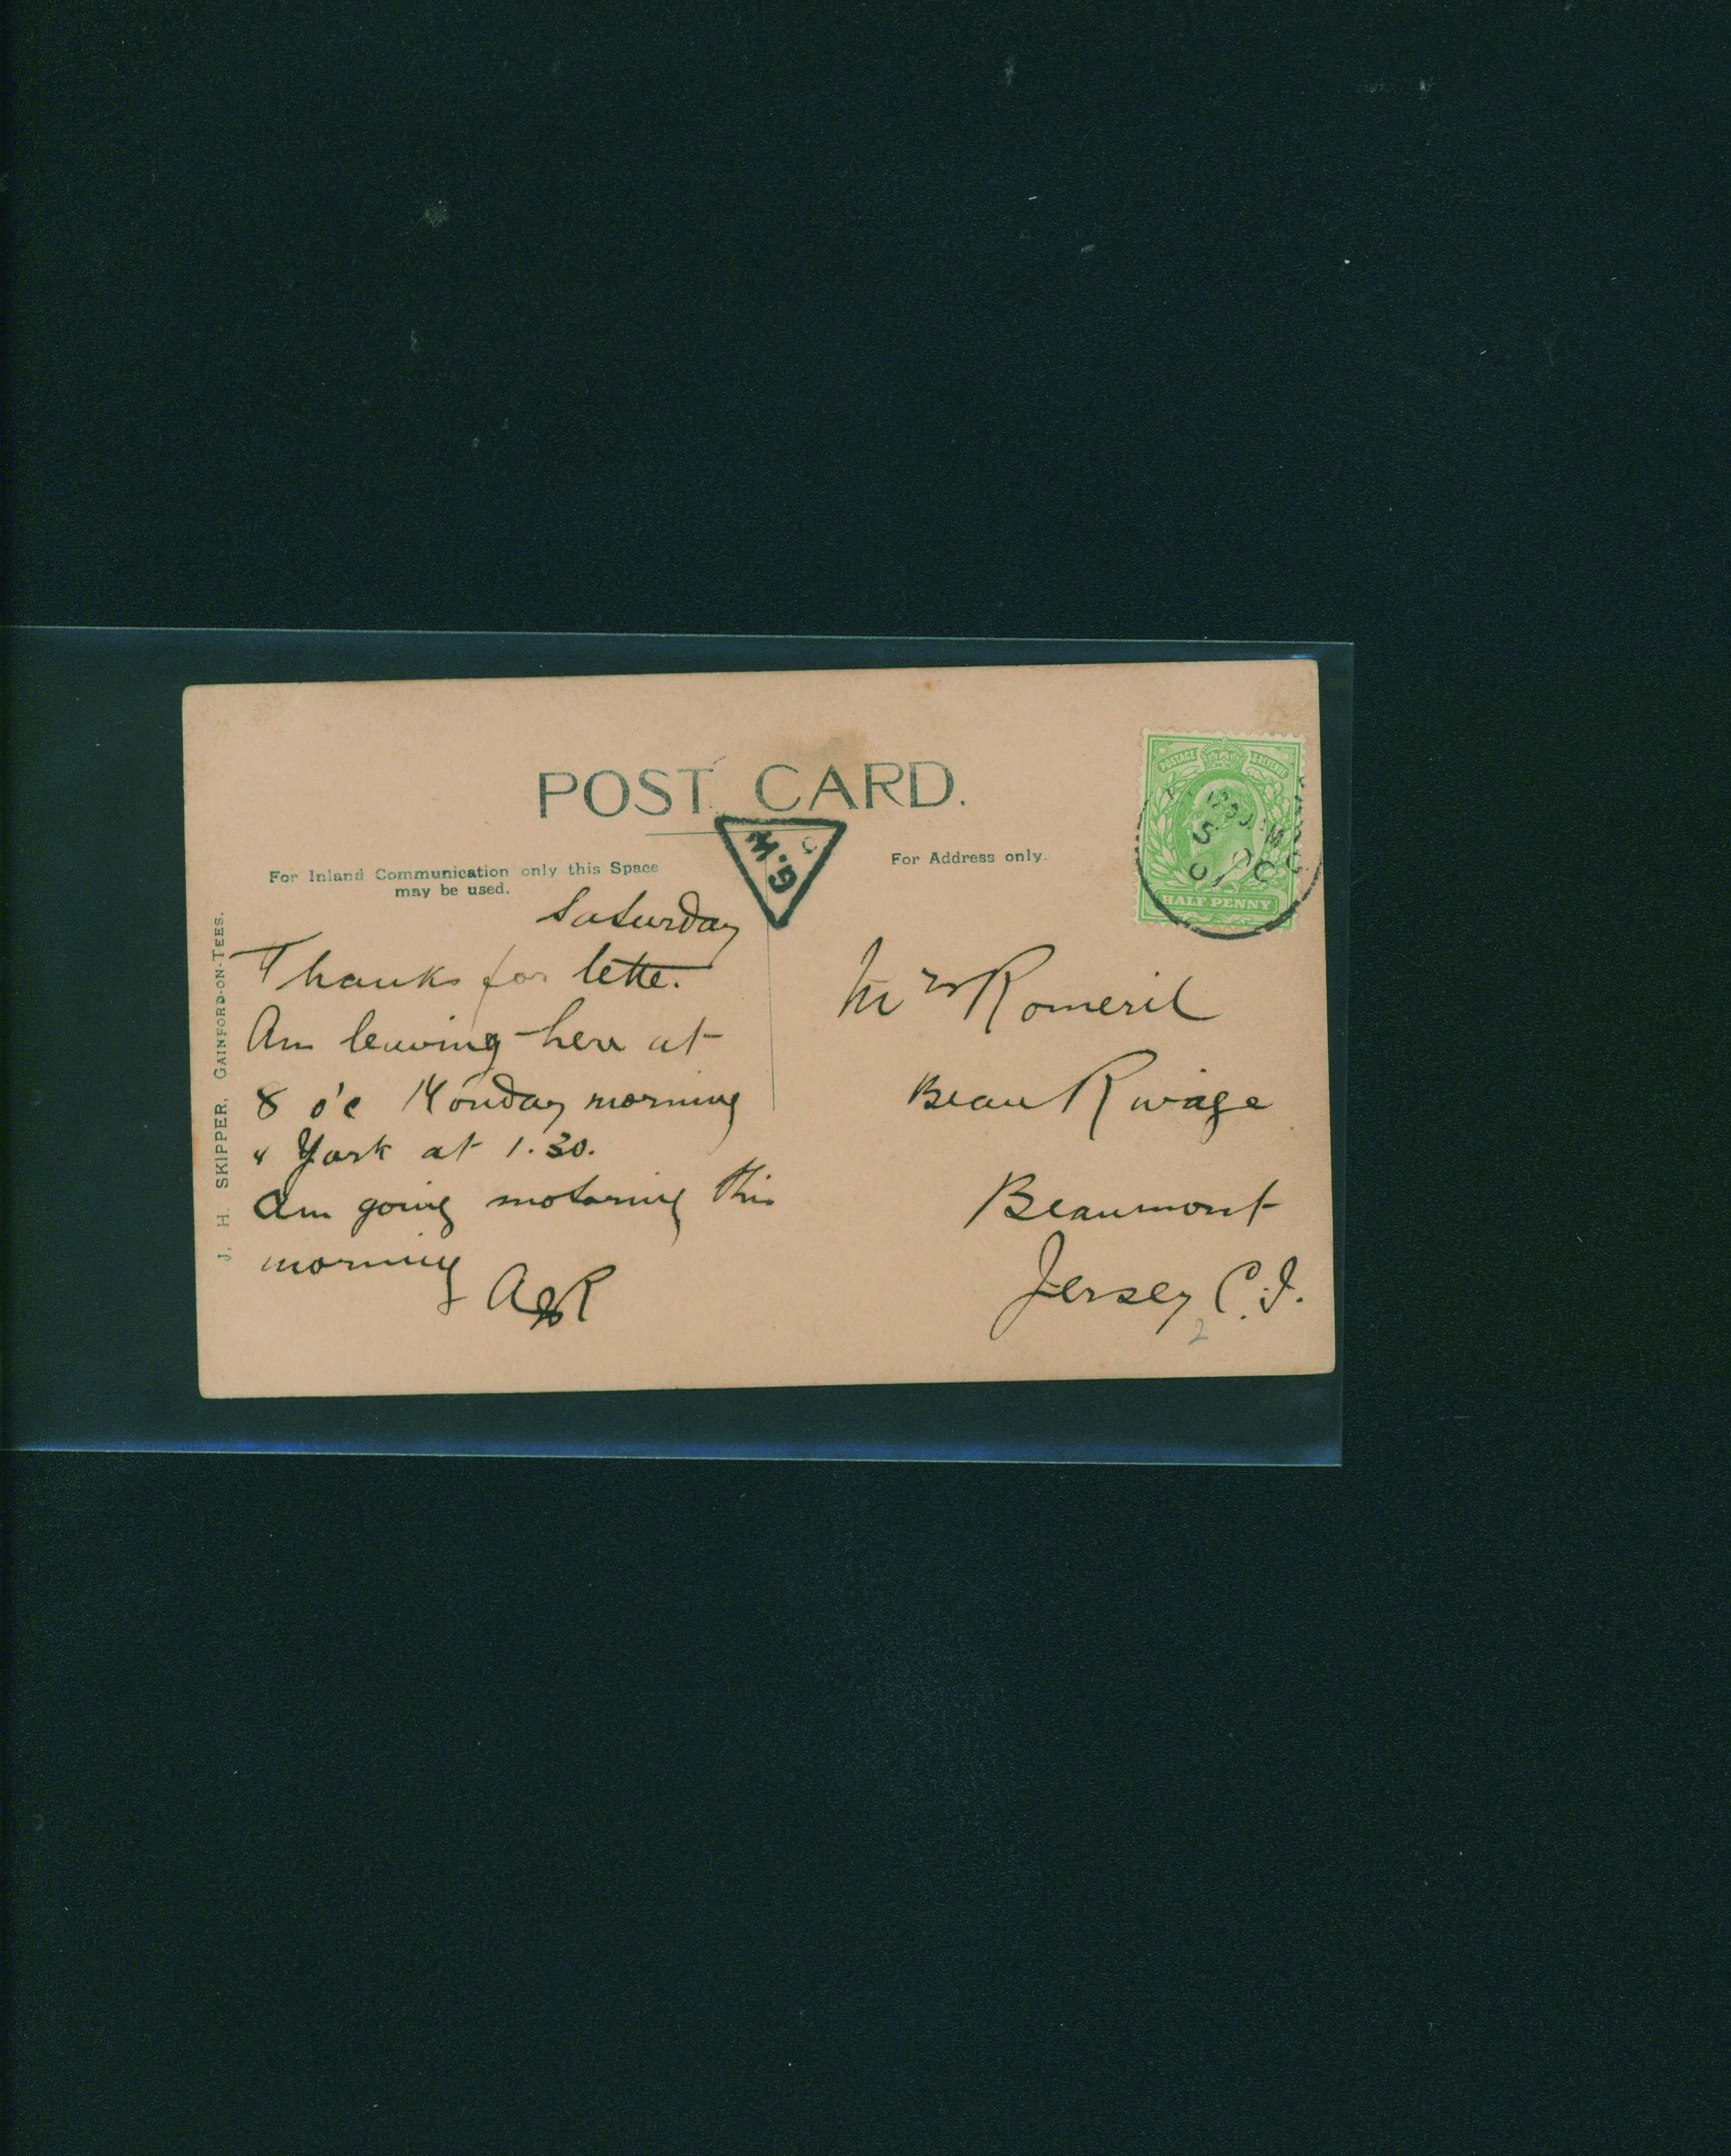 POST CARD.
For Inland Communication only this Space
may be used.
For Address only.
G.M
POSTAGE & REVENUE
HALF PENNY
5 OC
J. H. SKIPPER, GAINFORD-ON-TEES.
Saturday
Thanks for lette.
Am leaving here at
8 o'c Monday morning
" York at 1.30.
Am going motoring this
morning
Mrs Romeril
Beau Rivage
Beaumont
Jersey C.I.
2